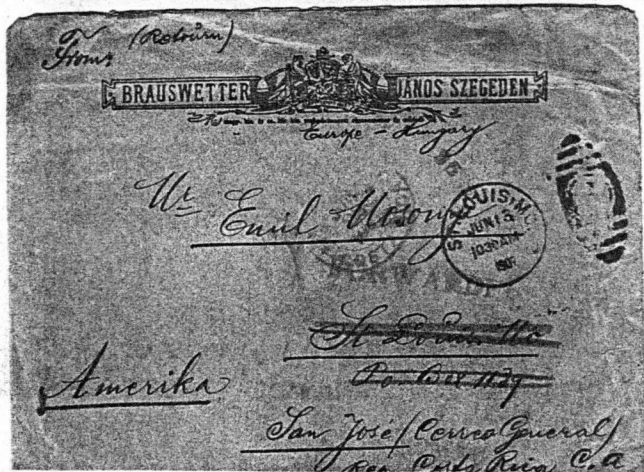 From: (Retourn)
BRAUSWETTER JÁNOS SZEGEDEN
Europe - Hungary
Mr Emil Mosonyi
ST. LOUIS, MO.
JUN 13
1030 AM
FORWARDED
St Louis Mo
Po. Box 1127
Amerika
San José (Correo General)
Rep. Costa Rica C. A.